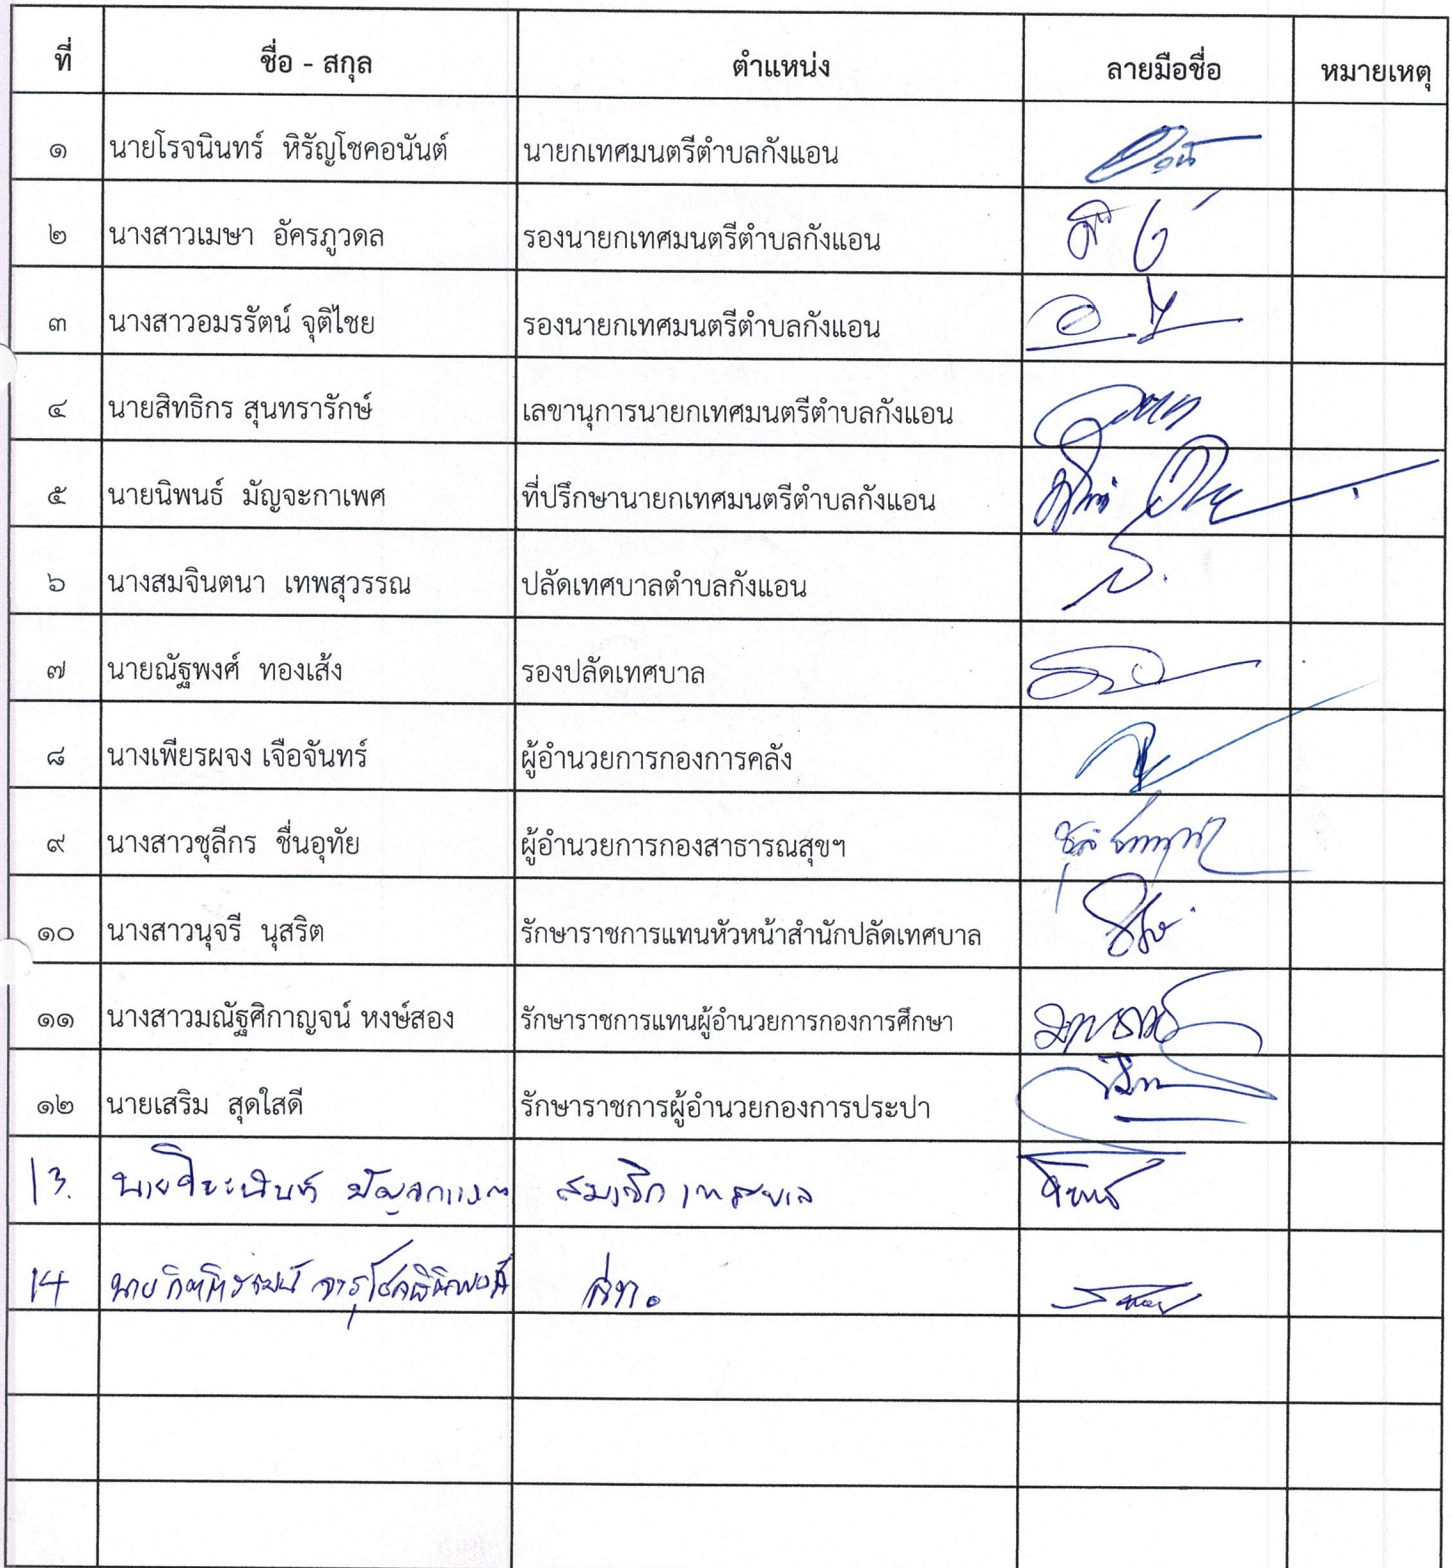 ที่ ชื่อ - สกุล ตำแหน่ง ลายมือชื่อ หมายเหตุ
๑ นายโรจนินทร์ หิรัญโชคอนันต์ นายกเทศมนตรีตำบลกังแอน
๒ นางสาวเมษา อัครภูวดล รองนายกเทศมนตรีตำบลกังแอน
๓ นางสาวอมรรัตน์ จุติไชย รองนายกเทศมนตรีตำบลกังแอน
๔ นายสิทธิกร สุนทรารักษ์ เลขานุการนายกเทศมนตรีตำบลกังแอน
๕ นายนิพนธ์ มัญจะกาเพศ ที่ปรึกษานายกเทศมนตรีตำบลกังแอน
๖ นางสมจินตนา เทพสุวรรณ ปลัดเทศบาลตำบลกังแอน
๗ นายณัฐพงศ์ ทองเส้ง รองปลัดเทศบาล
๘ นางเพียรผจง เจือจันทร์ ผู้อำนวยการกองการคลัง
๙ นางสาวชุลีกร ชื่นอุทัย ผู้อำนวยการกองสาธารณสุขฯ
๑๐ นางสาวนุจรี นุสริต รักษาราชการแทนหัวหน้าสำนักปลัดเทศบาล
๑๑ นางสาวมณัฐศิกาญจน์ หงษ์สอง รักษาราชการแทนผู้อำนวยการกองการศึกษา
๑๒ นายเสริม สุดใสดี รักษาราชการผู้อำนวยกองการประปา
13. สมาชิกเทศบาล
14 สท.